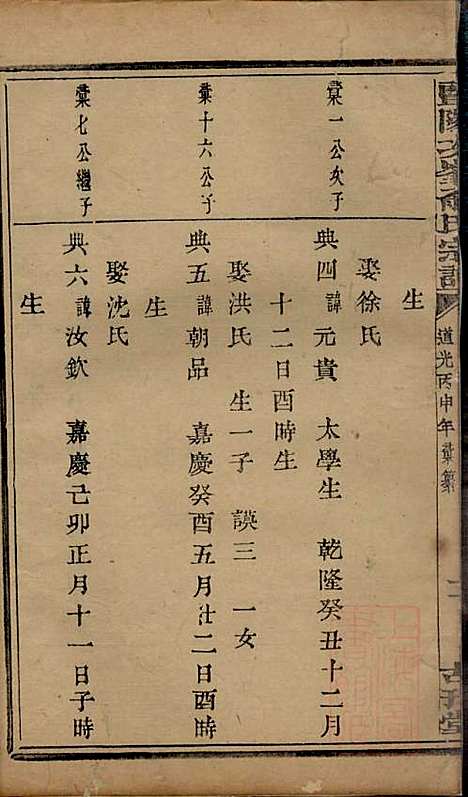 道光丙申年彙纂
生
娶徐氏
彙一公次子
典四諱元貴 太學生 乾隆癸丑十二月
十二日酉時生
娶洪氏 生一子 謨三 一女
彙十六公子
典五諱朝品 嘉慶癸酉五月廿二日酉時
生
娶沈氏
彙七公繼子
典六諱汝欽 嘉慶己卯正月十一日子時
生